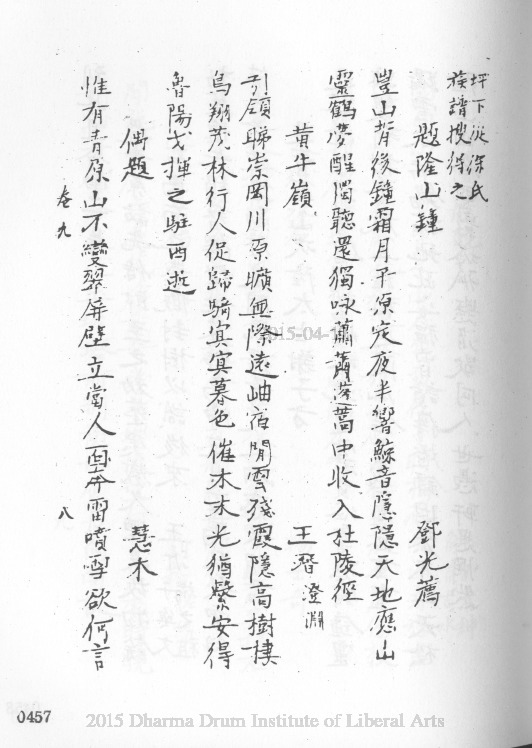 坪下派徐氏
族譜搜得之
題隆山鐘 鄧光薦
豈山背後鐘霜月平原定夜半響鯨音隱隱天地應山
靈鶴夢醒閣聽還獨咏蕭蕭蓬蒿中收入杜陵徑
黃牛嶺 王澄淵
引領睇崇岡川原曠無際遠岫宿閒雲殘霞隱高樹棲
鳥翔茂林行人促歸騎寞寞暮色催木末光猶繫安得
魯陽戈揮之駐西逝
偶題 慧木
惟有青原山不變翠屏壁立當人面奔雷噴雪欲何言
卷九 八
0457
2015 Dharma Drum Institute of Liberal Arts